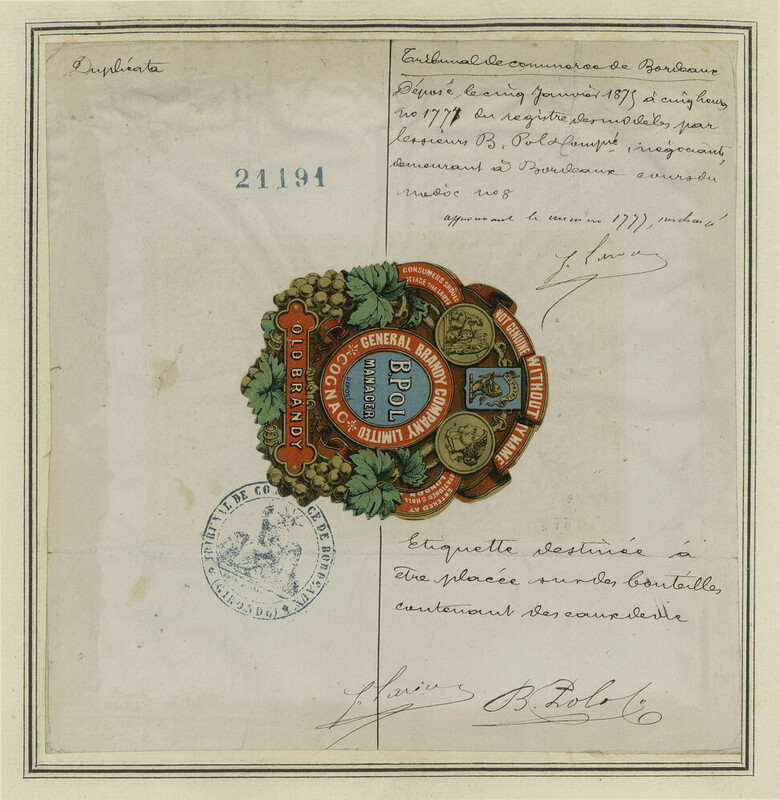 Duplicata
21191
Tribunal de commerce de Bordeaux
Déposé, le cinq Janvier 1875 à cinq heures
no 1777 du registre des modèles par
les sieurs B. Pol & Compie, négociants,
demeurant à Bordeaux cours du
médoc no 8
approuvant le numéro 1777, surchargé
CONSUMERS SHOULD
DEFACE THE LABEL
NOT GENUINE WITHOUT MY NAME
GENERAL BRANDY COMPANY LIMITED
COGNAC
B. POL
MANAGER
OLD BRANDY
ENTERED AT
STATIONER'S HALL
LONDON
TRIBUNAL DE COMMERCE DE BORDEAUX
(GIRONDE)
Etiquette destinée à
être placée sur des bouteilles
contenant des eaux de vie
B. Pol & Co